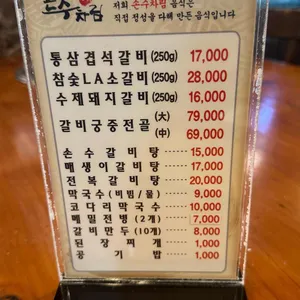 손수차림
저희 손수차림 음식은
직접 정성을 다해 만든 음식입니다
통삼겹석갈비(250g) 17,000
참숯LA소갈비(250g) 28,000
수제돼지갈비(250g) 16,000
갈비궁중전골 (大) 79,000
(中) 69,000
손수갈비탕 15,000
매생이갈비탕 17,000
전복갈비탕 20,000
막국수(비빔/물) 9,000
코다리막국수 10,000
메밀전병(2개) 7,000
갈비만두(10개) 8,000
된장찌개 1,000
공기밥 1,000